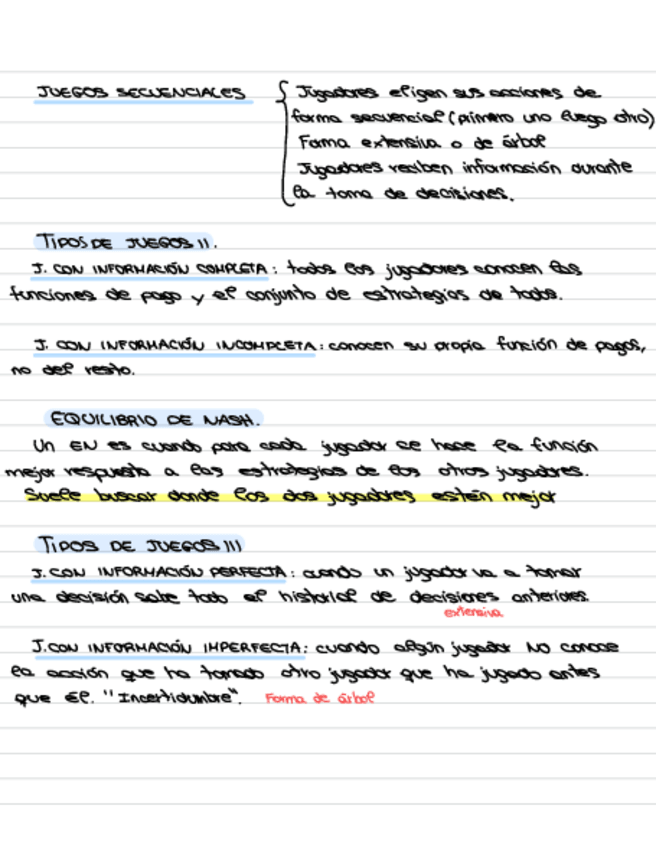 JUEGOS SECUENCIALES
Jugadores eligen sus acciones de
forma secuencial (primero uno luego otro)
Forma extensiva o de árbol
Jugadores reciben información durante
la toma de decisiones.
TIPOS DE JUEGOS II.
J. CON INFORMACIÓN COMPLETA: todos los jugadores conocen las
funciones de pago y el conjunto de estrategias de todos.
J. CON INFORMACIÓN INCOMPLETA: conocen su propia función de pagos,
no del resto.
EQUILIBRIO DE NASH.
Un EN es cuando para cada jugador se hace la función
mejor respuesta a las estrategias de los otros jugadores.
Suele buscar donde los dos jugadores estén mejor
TIPOS DE JUEGOS III
J. CON INFORMACIÓN PERFECTA: cuando un jugador va a tomar
una decisión sabe todo el historial de decisiones anteriores.
extensiva
J. CON INFORMACIÓN IMPERFECTA: cuando algún jugador NO conoce
la acción que ha tomado otro jugador que ha jugado antes
que ÉL. "Incertidumbre". Forma de árbol